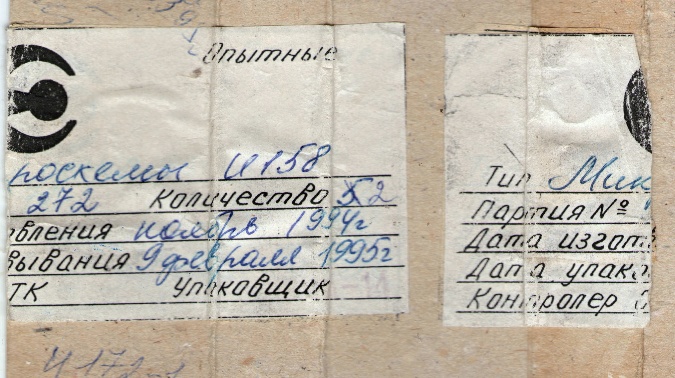 Опытные
роскемы И158
272 Количество 52
вления ноябрь 1994г
вывания 9 февраля 1995г
ТК Упаковщик
Тип Мик
Партия №
Дата изгото
Дата упако
Контролер